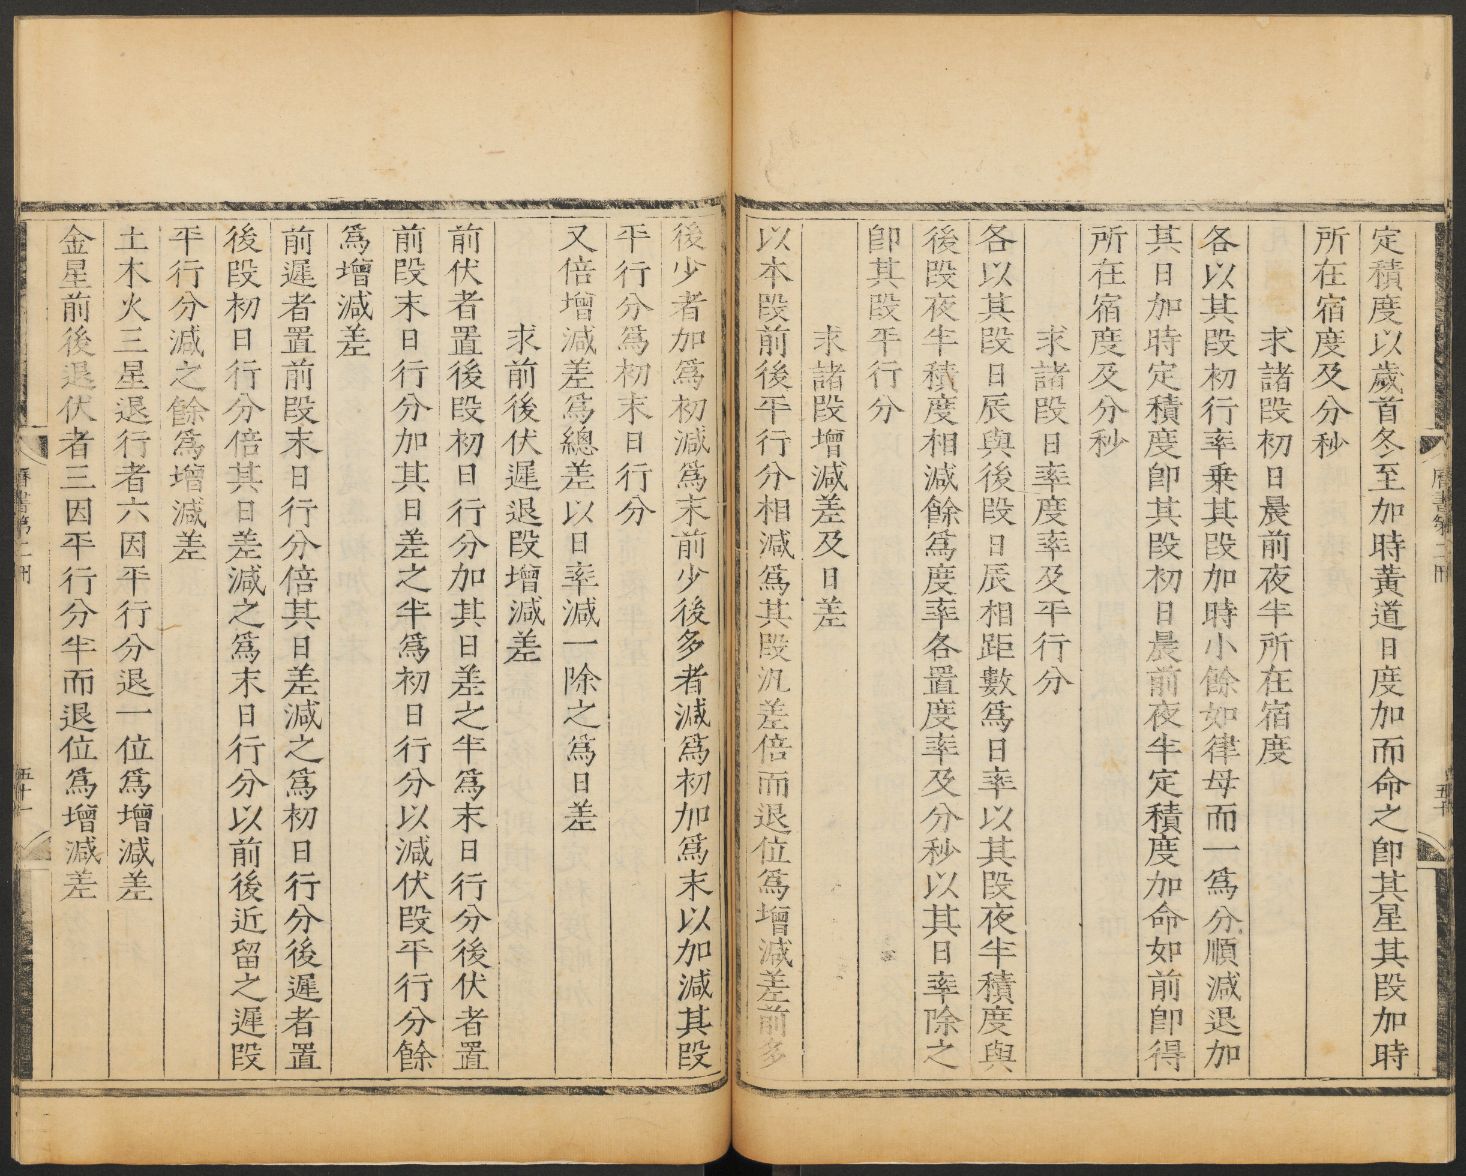 定積度以歲首冬至加時黃道日度加而命之卽其星其段加時
所在宿度及分秒
求諸段初日晨前夜半所在宿度
各以其段初行率乗其段加時小餘如律母而一爲分順減退加
其日加時定積度卽其段初日晨前夜半定積度加命如前卽得
所在宿度及分秒
求諸段日率度率及平行分
各以其段日辰與後段日辰相距數爲日率以其段夜半積度與
後段夜半積度相減餘爲度率各置度率及分秒以其日率除之
卽其段平行分
求諸段增減差及日差
以本段前後平行分相減爲其段汎差倍而退位爲增減差前多
後少者加爲初減爲末前少後多者減爲初加爲末以加減其段
平行分爲初末日行分
又倍增減差爲總差以日率減一除之爲日差
求前後伏遲退段增減差
前伏者置後段初日行分加其日差之半爲末日行分後伏者置
前段末日行分加其日差之半爲初日行分以減伏段平行分餘
爲增減差
前遲者置前段末日行分倍其日差減之爲初日行分後遲者置
後段初日行分倍其日差減之爲末日行分以前後近留之遲段
平行分減之餘爲增減差
土木火三星退行者六因平行分退一位爲增減差
金星前後退伏者三因平行分半而退位爲增減差